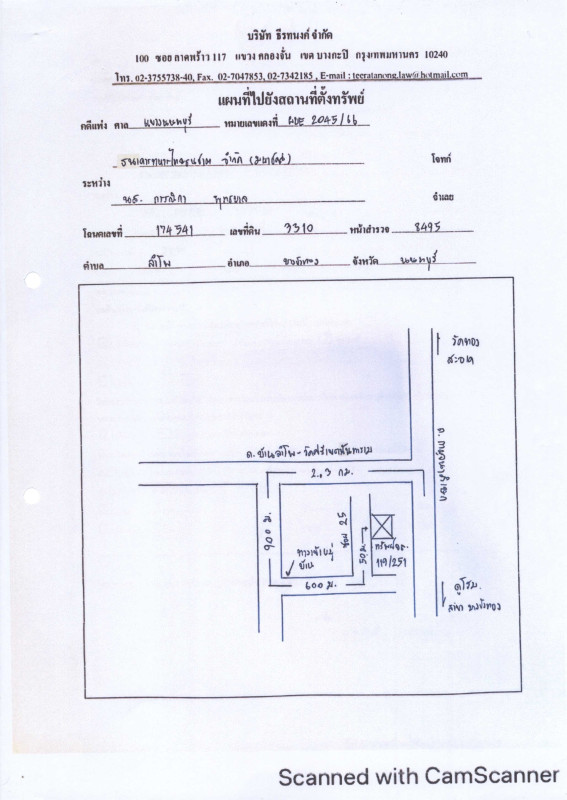 บริษัท ธีรทนงค์ จำกัด
100 ซอย ลาดพร้าว 117 แขวง คลองจั่น เขต บางกะปิ กรุงเทพมหานคร 10240
โทร. 02-3755738-40, Fax. 02-7047853, 02-7342185 , E-mail : teeratanong.law@hotmail.com
แผนที่ไปยังสถานที่ตั้งทรัพย์
คดีแพ่ง ศาล แขวงนนทบุรี หมายเลขแดงที่ ผบE 2045/66
จำกัด (มหาชน) โจทก์
ระหว่าง
นส. จำเลย
โฉนดเลขที่ 174541 เลขที่ดิน 3310 หน้าสำรวจ 8495
ตำบล ลำโพ อำเภอ บางบัวทอง จังหวัด นนทบุรี
วัดทอง
สะอาด
ถ. บ้านลำโพ-
2.3 กม.
ถ. กาญจนาภิเษก
900 ม.
ซอย 25
50 ม.
ทางเข้าหมู่
บ้าน
ทรัพย์
119/251
600 ม.
สาขา บางบัวทอง
Scanned with CamScanner